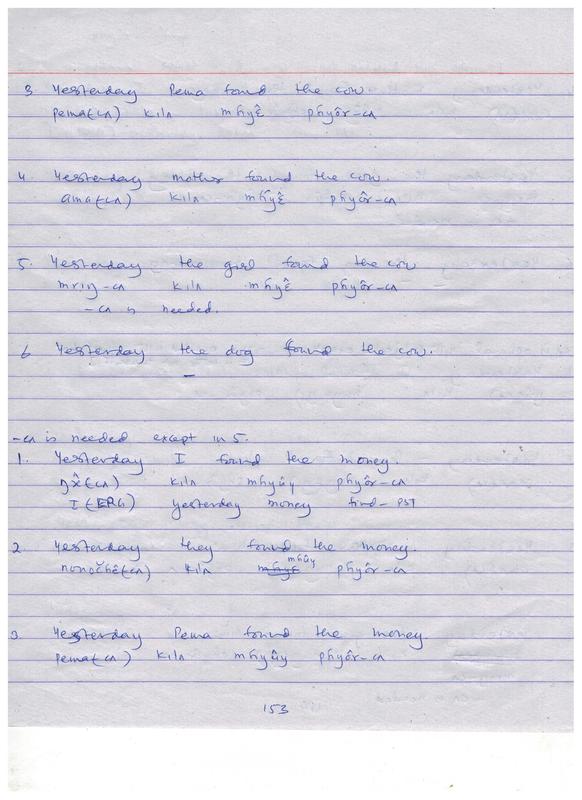 3 Yesterday Pema found the cow.
pema(-cʌ) kilʌ mɦyɛ̂ pɦyôr-cʌ
4. Yesterday mother found the cow.
ama(-cʌ) kilʌ mɦyɛ̂ pɦyôr-cʌ
5. Yesterday the girl found the cow
mriŋ-cʌ kilʌ mɦyɛ̂ pɦyôr-cʌ
-cʌ is needed.
6 Yesterday the dog found the cow.
-cʌ is needed except in 5.
1. Yesterday I found the money.
kilʌ mɦyûy pɦyôr-cʌ
I (ERG) yesterday money find-PST
2. Yesterday they found the money.
kilʌ mɦûy pɦyôr-cʌ
3 Yesterday Pema found the money.
pema(-cʌ) kilʌ mɦyûy pɦyôr-cʌ
153